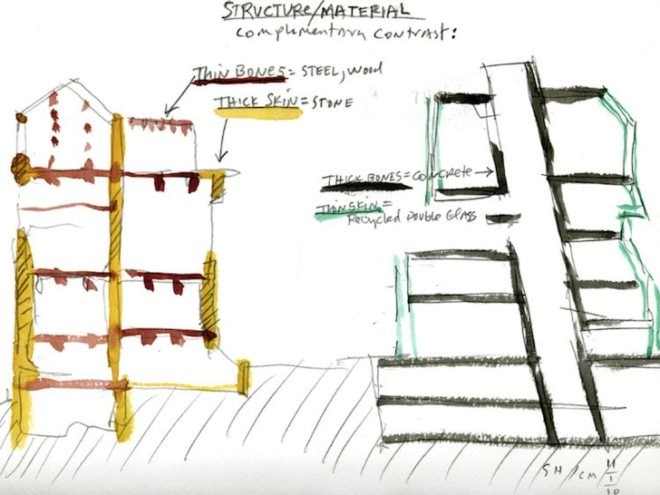 STRUCTURE/MATERIAL
Complementary Contrast:
THIN BONES = STEEL, WOOD
THICK SKIN = STONE
THICK BONES = CONCRETE
THIN SKIN =
Recycled Double Glass
SH / CM 11
1
10